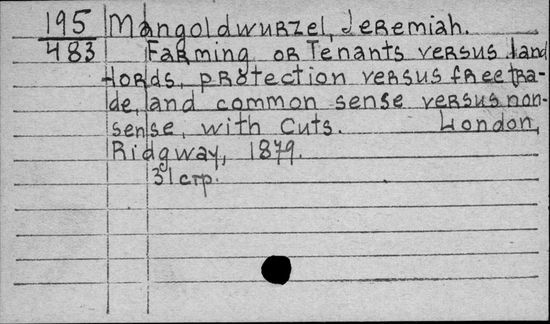 195 Mangoldwurzel, Jeremiah.
483 Farming or Tenants versus land
lords, protection versus freetra-
de, and common sense versus non-
sense, with Cuts. London,
Ridgway, 1879.
31 стр.